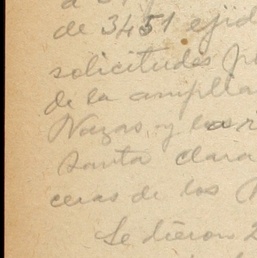 de 3451 ejid
solicitudes p
de la amplia
Nazas, y las r
Santa Clara
ceras de los
Se dieron 2